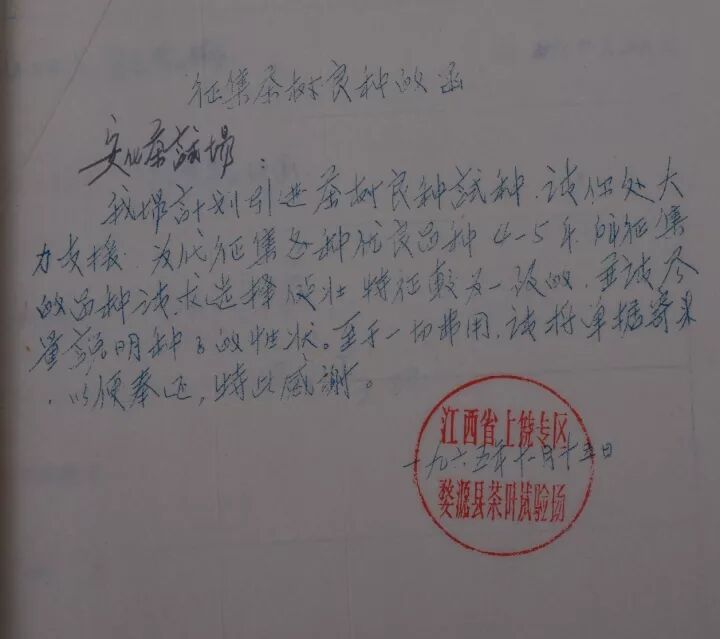 征集茶树良种的函
安化茶試場:
我場計划引进茶树良种試种,请你处大
力支援,为代征集各种优良品种4-5年,所征集
的品种请求选择健壮特征較为一致的,并请尽
量説明种子的性状。至于一切费用,请将单据寄来
,以便奉还,特此感謝。
江西省上饒专区
一九六五年十一月十五日
婺源县茶叶試验场